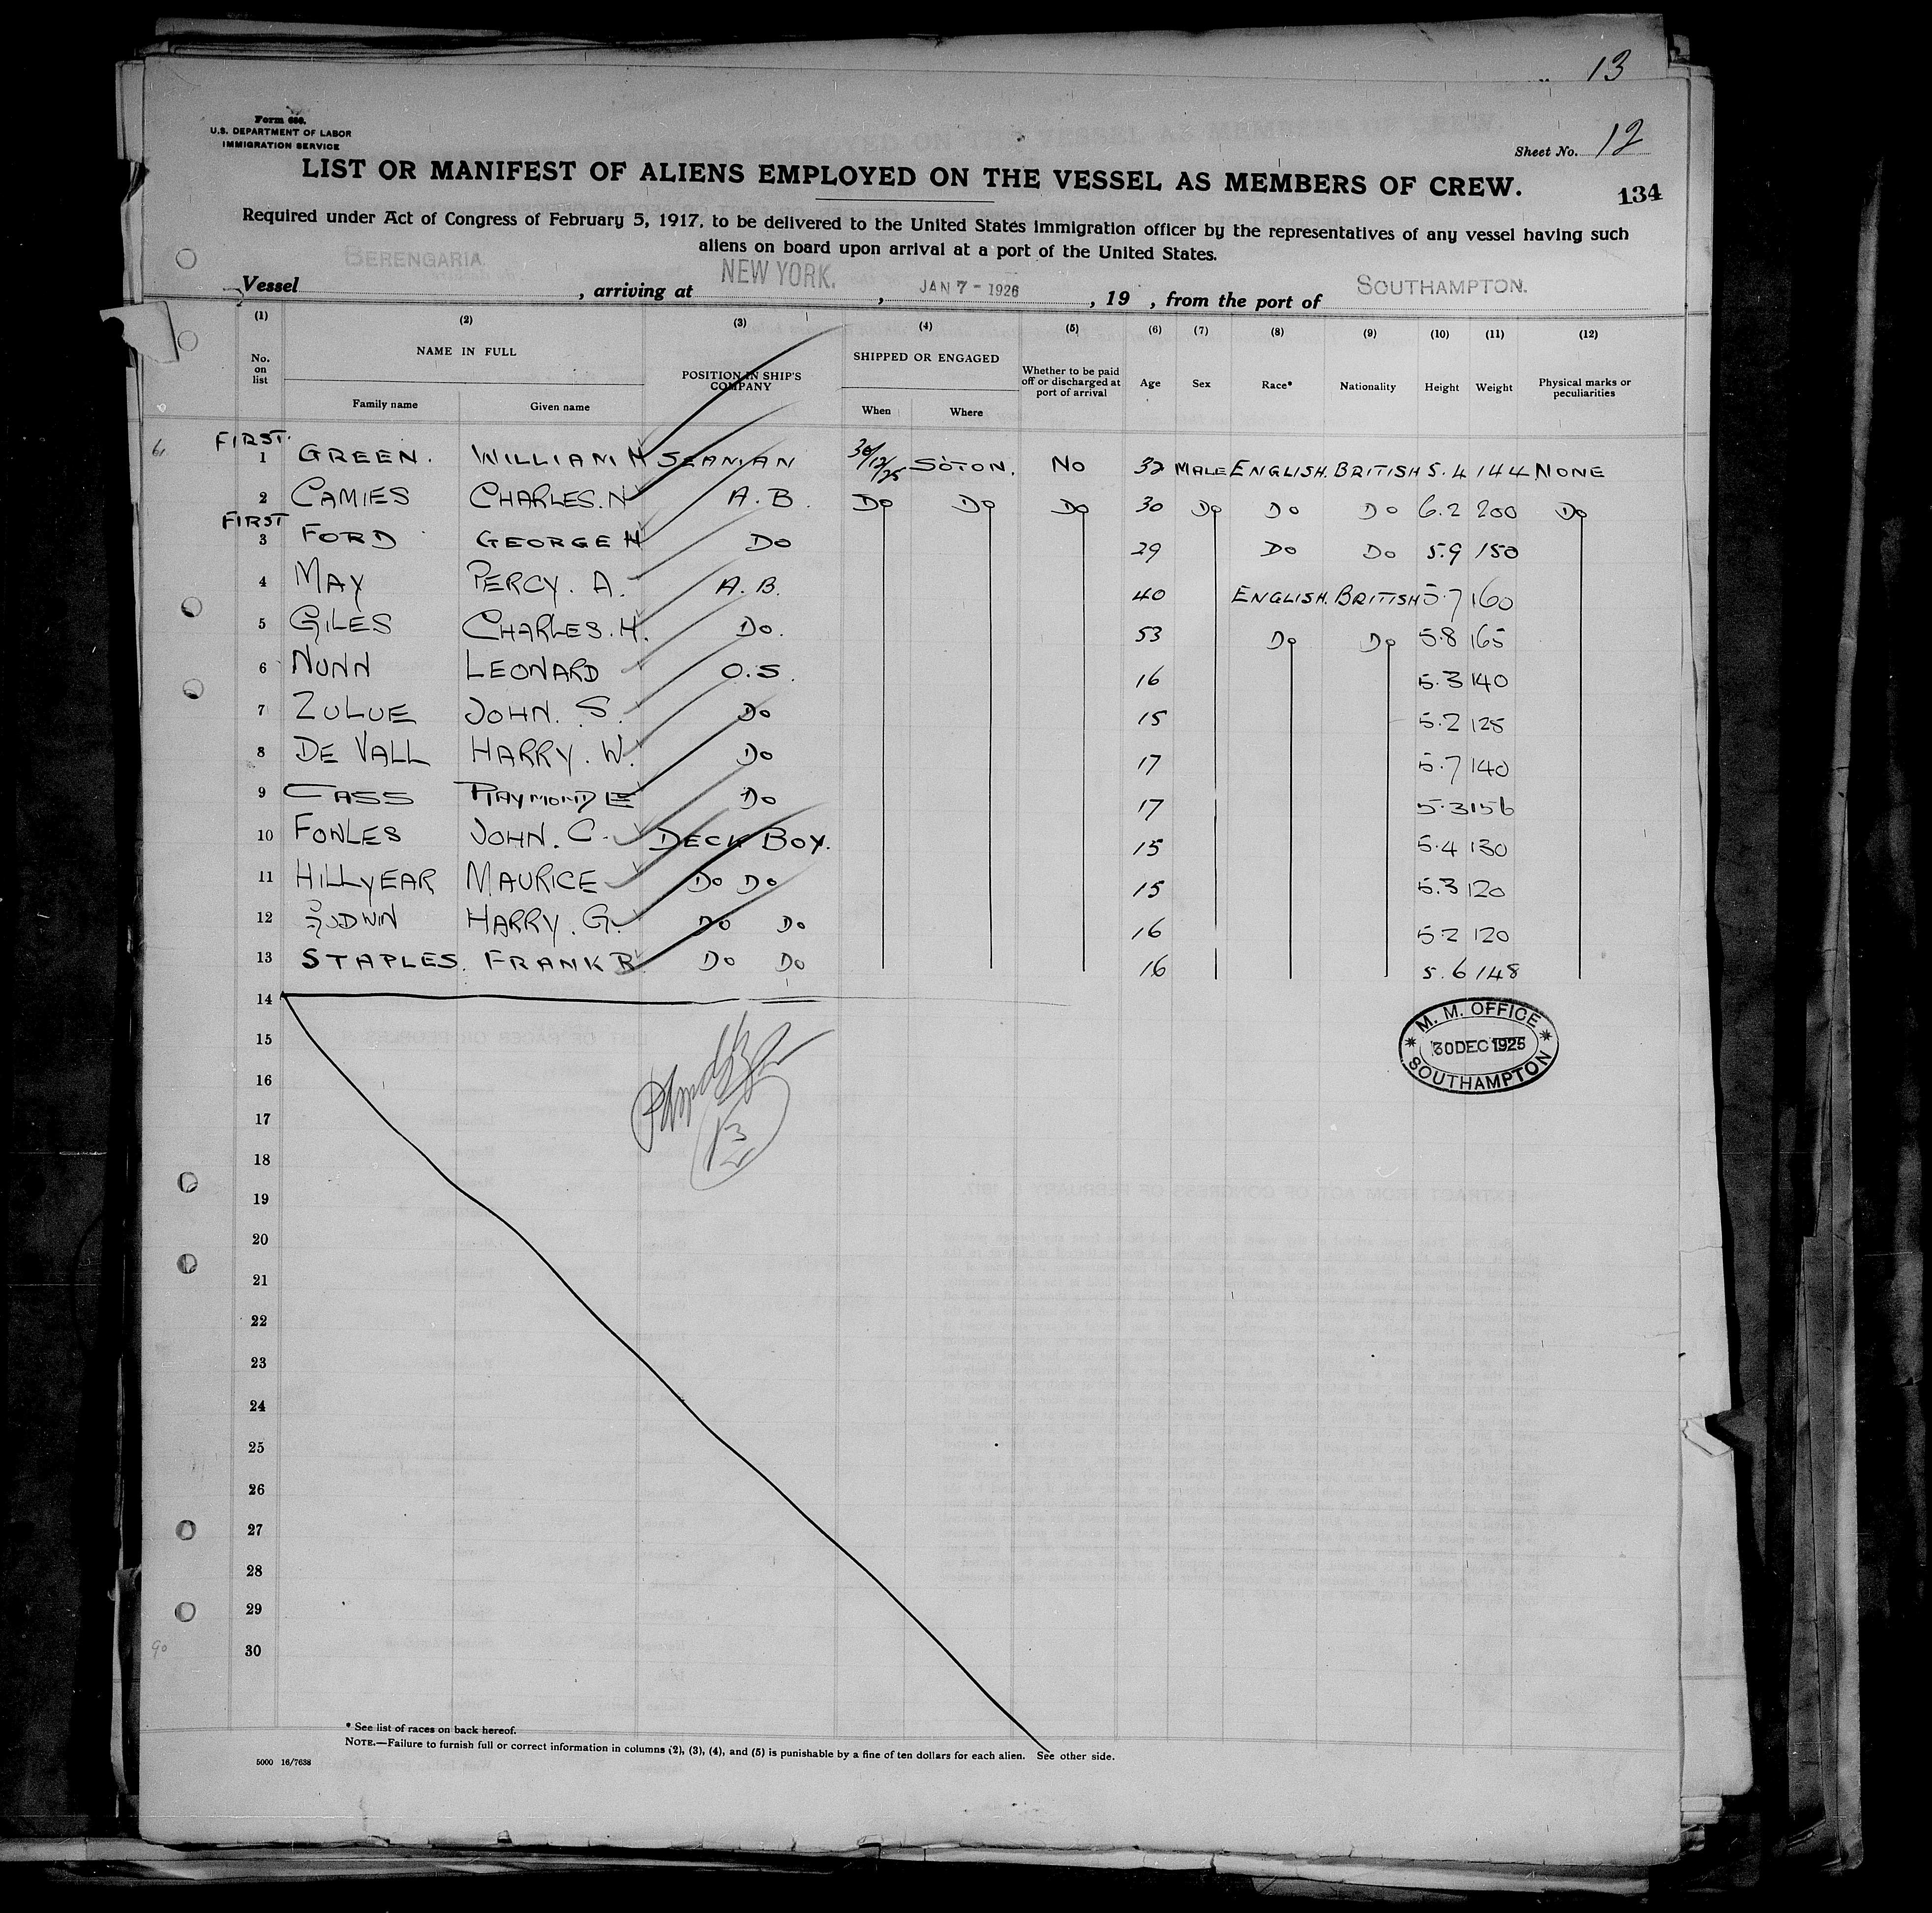 13
Form 680.
U.S. DEPARTMENT OF LABOR
IMMIGRATION SERVICE
Sheet No. 12
LIST OR MANIFEST OF ALIENS EMPLOYED ON THE VESSEL AS MEMBERS OF CREW.
134
Required under Act of Congress of February 5, 1917, to be delivered to the United States immigration officer by the representatives of any vessel having such
aliens on board upon arrival at a port of the United States.
Vessel BERENGARIA, arriving at NEW YORK., JAN 7-1926, 19 , from the port of SOUTHAMPTON.
(1) (2) (3) (4) (5) (6) (7) (8) (9) (10) (11) (12)
No. on list NAME IN FULL POSITION IN SHIP'S COMPANY SHIPPED OR ENGAGED Whether to be paid off or discharged at port of arrival Age Sex Race* Nationality Height Weight Physical marks or peculiarities
Family name Given name When Where
61 FIRST.
1 GREEN. WILLIAM H SEAMAN 30/12/25 SOTON. NO 32 MALE ENGLISH. BRITISH 5.4 144 NONE
2 CAMIES CHARLES. N A.B. Do Do Do 30 Do Do Do 6.2 200 Do
FIRST
3 FORD GEORGE H Do 29 Do Do 5.9 150
4 MAY PERCY. A. A.B. 40 ENGLISH. BRITISH 5.7 160
5 GILES CHARLES. H. Do. 53 Do Do 5.8 165
6 NUNN LEONARD O.S. 16 5.3 140
7 ZULUE JOHN. S. Do 15 5.2 125
8 DE VALL HARRY. W. Do 17 5.7 140
9 CASS RAYMOND E Do 17 5.3 156
10 FONLES JOHN. C. DECK BOY. 15 5.4 130
11 HILLYEAR MAURICE Do Do 15 5.3 120
12 GUDWIN HARRY. G. Do Do 16 5.2 120
13 STAPLES. FRANK R. Do Do 16 5.6 148
14
15
16
17
18
19
20
21
22
23
24
25
26
27
28
29
30
M. M. OFFICE
30 DEC 1925
SOUTHAMPTON
13
90
* See list of races on back hereof.
NOTE.—Failure to furnish full or correct information in columns (2), (3), (4), and (5) is punishable by a fine of ten dollars for each alien. See other side.
5000 16/7638